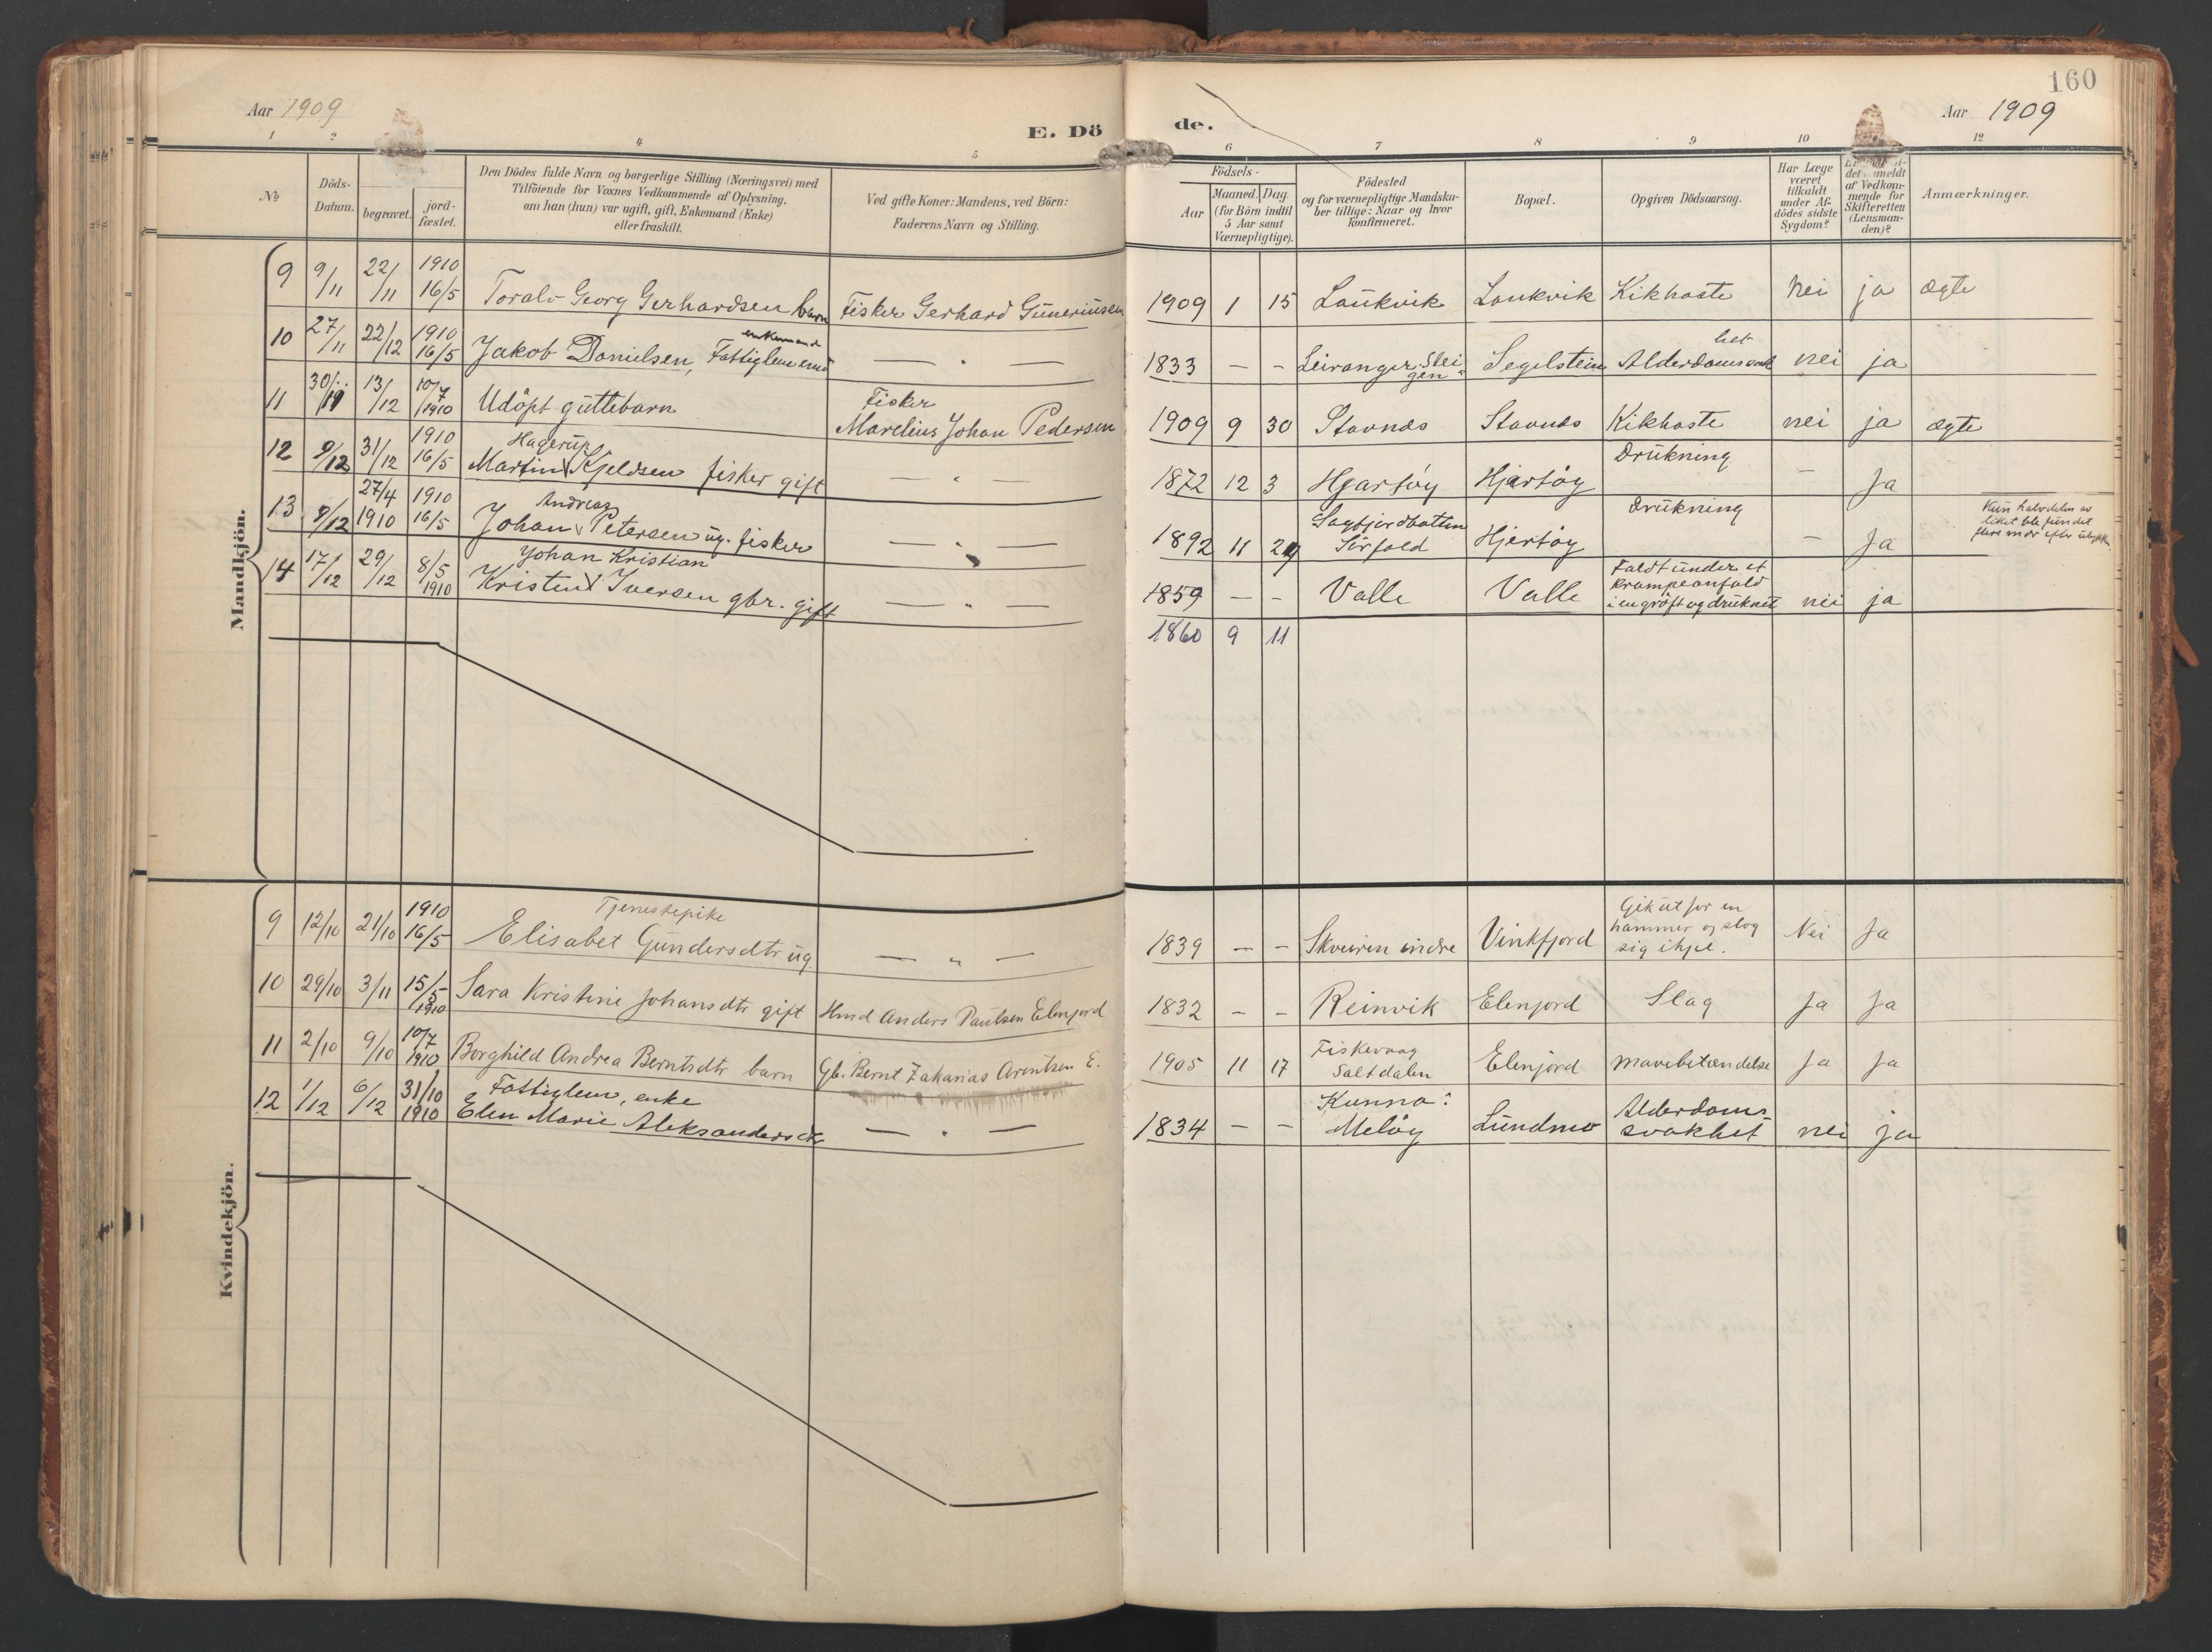 160
Aar 1909
E. Dö
de.
Aar 1909
1 2 4 5 6 7 8 9 10 12
No
Döds-
Datum.
begravet.
jord-
fæstet.
Den Dödes fulde Navn og borgerlige Stilling (Næringsvei) med
Tilföiende for Voxnes Vedkommende af Oplysning,
om han (hun) var ugift, gift, Enkemand (Enke)
eller fraskilt.
Ved gifte Koner: Mandens, ved Börn:
Faderens Navn og Stilling.
Födsels-
Aar
Maaned. Dag.
(for Börn indtil
5 Aar samt
Værnepligtige).
Födested
og for værnepligtige Mandska-
ber tillige: Naar og hvor
konfirmeret.
Bopæl.
Opgiven Dödsaarsag.
Har Læge
været
tilkaldt
under Af-
dödes sidste
Sygdom?
af Vedkom-
mende for
Skifteretten
(Lensman-
den)?
Anmærkninger.
Mandkjön.
9 9/11 22/11 1910 16/5 Toralv Georg Gerhardsen barn Fisker Gerhard Guneriusen 1909 1 15 Laukvik Laukvik Kikhoste Nei ja ægte
enkemand
het
10 27/11 22/12 1910 16/5 Jakob Danielsen, Fattiglem — " — 1833 — — Leiranger Steigen Segelstein Alderdomssvak nei ja
11 30/11 13/12 10/7 1910 Udöpt guttebarn Fisker
Marelius Johan Pedersen 1909 9 30 Stavnes Stavnes Kikhoste nei ja ægte
Hagerup
12 9/12 31/12 1910 16/5 Martin Kjeldsen fisker gift — " — 1872 12 3 Hjartöy Hjartöy Drukning — Ja
Andreas
13 9/12 27/4 1910 1910 16/5 Johan Petersen ug. fisker — " — 1892 11 29 Sagfjordbotten
Sörfold Hjertöy Drukning — Ja Kun halvdelen av
liket ble fundet
flere mdr efter
Johan Kristian
14 17/12 29/12 8/5 1910 Kristen Iversen gbr. gift — " — 1859 — — Valle Valle Faldt under et
krampeanfald
i en gröft og druknet nei ja
1860 9 11
Kvindekjön.
Tjenestepike
9 12/10 21/10 1910 16/5 Elisabet Gundersdtr ug. — " — 1839 — — Skveiren indre Vinkfjord Gik ut for en
hammer og slog
sig ihjel. Nei Ja
10 29/10 3/11 15/5 1910 Sara Kristine Johansdtr gift Hmd Anders Paulsen Elvfjord 1832 — — Reinvik Elvfjord Slag Ja Ja
11 2/10 9/10 10/7 1910 Borghild Andrea Berntsdtr barn Gb. Bernt Zakarias Arntsen E. 1905 11 17 Fiskevaag
Saltdalen Elvfjord Mavebetændelse Ja Ja
Fattiglem, enke
12 1/12 6/12 31/10 1910 Elen Marie Aleksandersdtr — " — 1834 — — Kunna:
Melöy Lundmo Alderdoms-
svakhet nei ja